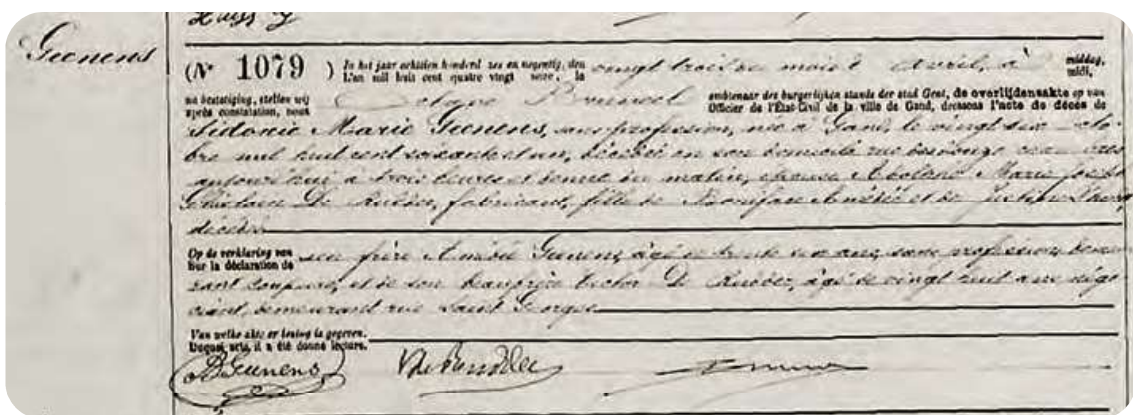 Geenens
(Nr 1079 ) In het jaar achttien honderd zes en negentig, den
L'an mil huit cent quatre vingt seize, le vingt trois du mois d' Avril, à middag,
midi,
na bestatiging, stellen wij
après constatation, nous Octave Bruneel ambtenaar des burgerlijken stands der stad Gent, de overlijdensakte op van
Officier de l'État-Civil de la ville de Gand, dressons l'acte de décès de
Sidonie Marie Geenens, sans profession, née à Gand, le vingt six octo
bre mil huit cent soixante et un, décédée en son domicile rue
aujourd'hui à trois heures et demie du matin, épouse Marie
Ghislain De Rudder, fabricant, fille de Boniface Amédée et de Justine
décédés
Op de verklaring van
Sur la déclaration de son frère Amédée Geenens, âgé de trente six ans, sans profession, demeu
rant coupure, et de son beaufrère Victor De Rudder, âgé de vingt huit ans négo
ciant, demeurant rue Saint Georges
Van welke akte er lezing is gegeven.
Duquel acte, il a été donné lecture.
Geenens